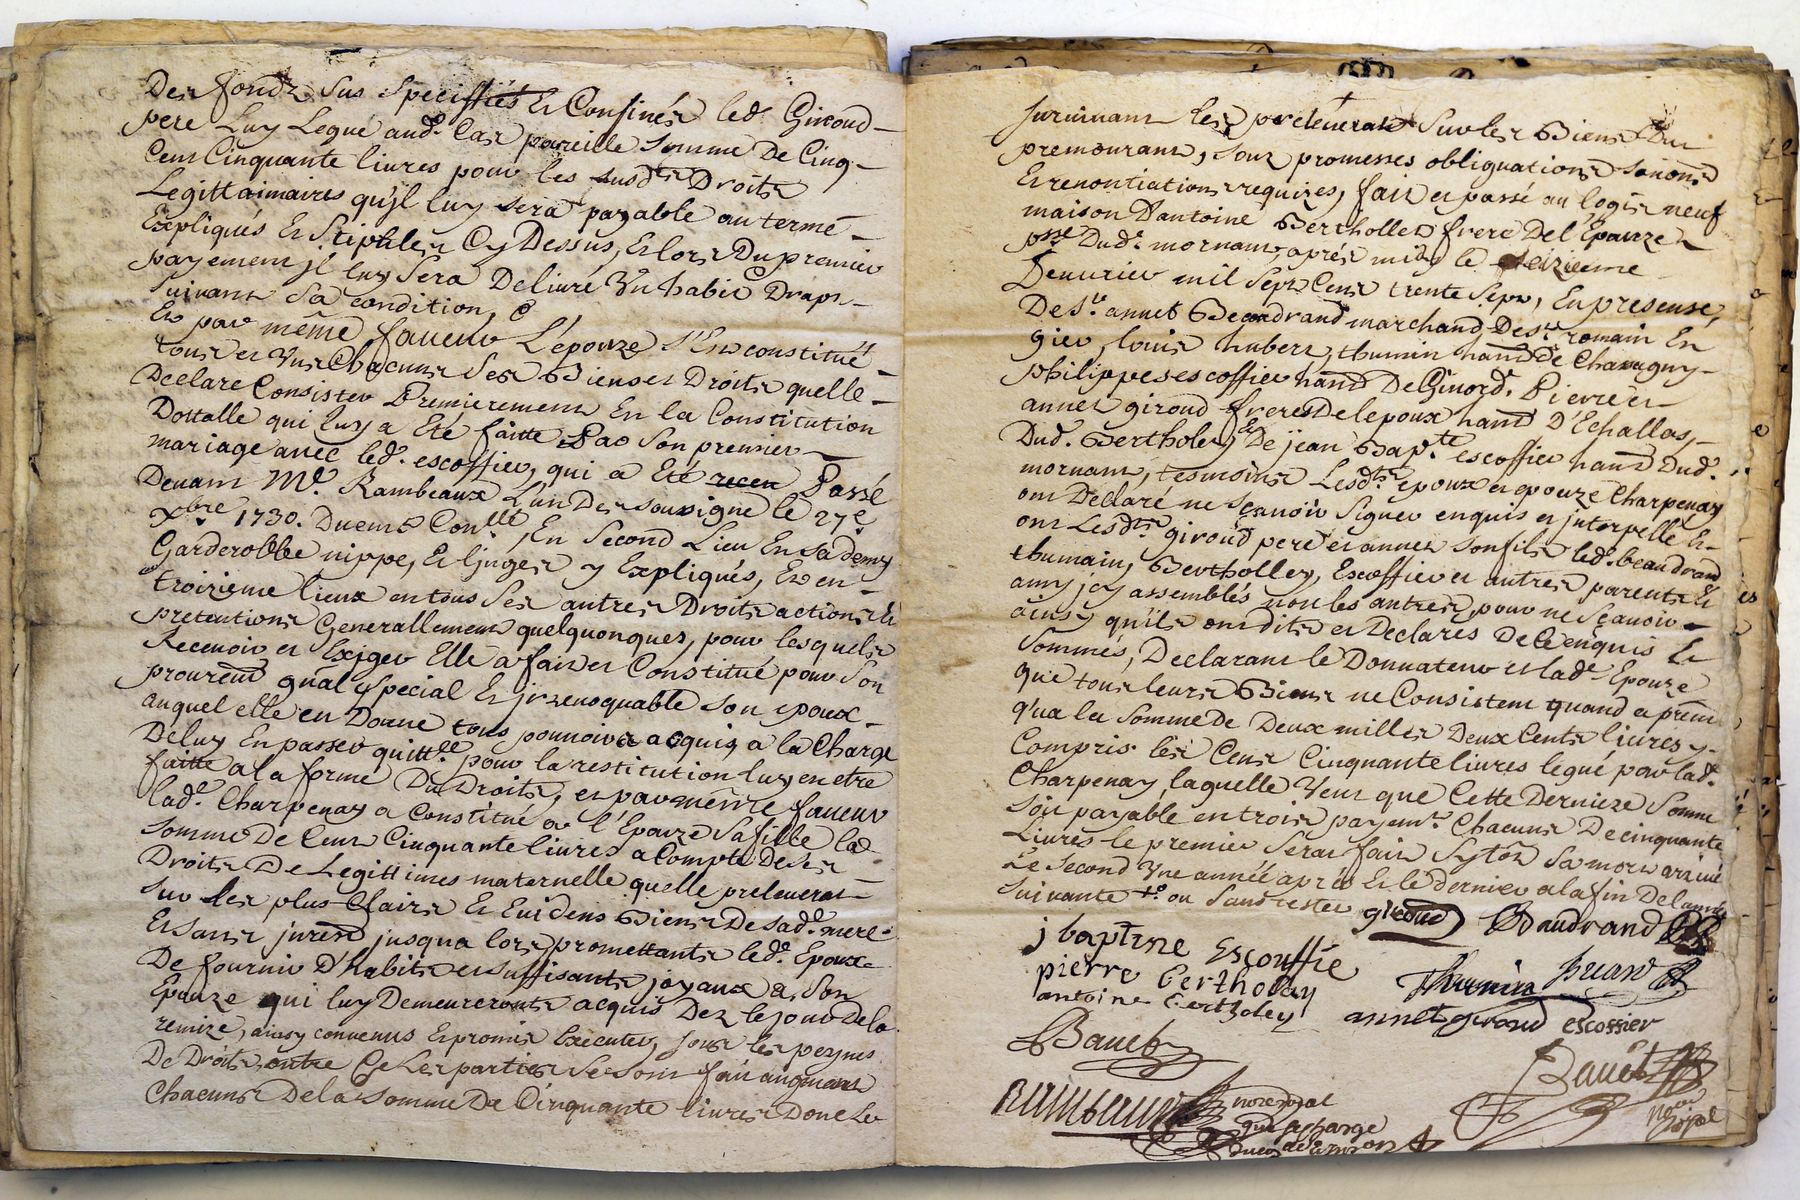 Des fonds sus speciffiés Et Confinés led. Giroud
pere Luy Legue aud. Cas pareille Somme De Cinq
Cent Cinquante livres pour les susdts Droits
Legittaimaires qu'jl luy sera payable au terme
Expliqués Et Stipulez Cy Dessus, Et lors Du premier
payement jl luy Sera Delivré Un habit Drap
suivant Sa condition,
Et par même faveur L'épouze s'Est constitué
tous et Uns Chacuns Ses Biens et Droits quelle
Declare Consister Premierement En la Constitution
Dottalle qui luy a Eté faitte Par Son premier
mariage avec led. escoffier, qui a Eté receu Passé
Devant Me. Rambeaux L'un Des soussigné le 27e
xbre 1730. Duemt Conllé, En Second Lieu En sa
Garderobbe nippe, Et linges y Expliqués, Et en
troizieme lieux en tous Ses autres Droits actions Et
pretentions Generallement quelquonques, pour lesquels
Recevoir et Exiger Elle a fait et Constitué pour Son
procureur gnal special Et jrrevoquable son epoux
auquel elle en Donne tous pouvoirs acquis a la Charge
De luy En passer quittce pour la restitution luy en etre
faitte a la forme Du Droits, et par même faveur
lade. Charpenay a Constitué a l'Epouze Sa fille la
somme De Cent Cinquante livres a Compte De ses
Droits De Legittimes maternelle quelle prelevera
sur les plus Clairs Et Evidens Biens De sade. mere
Et sans jusqua lors promettants led. Epoux
De fournir D'habits et suffisants joyaux a Son
Epouze qui luy Demeureronts acquis Dez le jour De la
remize, ainsy convenus Et promis Executer, sous les peynes
De Droits, outre Ce Les parties Se sont fait augment
Chacuns De la Somme De Cinquante livres Dont Le
survivant les prelevera Sur les Biens Du
premourant, sous promesses obliguations
Et renontiations requizes, fait et passé au logis neuf
maison D'antoine Berthollet frere De l'Epouze
psse Dud. mornant, aprés midy le seizieme
Jeanvier mil Sept Cent trente Sept, En presense,
De Sr. annet Beaudrand marchand De St romain En
gier, louis hubert, thumin hand De Chavagny
philippes escoffier hand De Ginord. Pierre et
annet giroud freres De lepoux hand D'Echallas,
Dud. Bertholey, Et De jean Bapte escoffier hand Dud.
mornant, tesmoins Lesdts epoux et epouze Charpenay
ont Declaré ne Sçavoir Signer enquis et jnterpellé Et
ont Lesdts giroud pere et annet son fils led. beaudrand
thumain, Bertholley, Escoffier et autres parents Et
amy jcy assemblés non les autres, pour ne Sçavoir
ainsy qu'ils ont dits et Declarés De Ce enquis Et
Sommés, Declarant le Donnateur et lade Epouze
que tous leurs Biens ne Consistent quand a prent
q'ua la Somme De Deux milles Deux Cents livres y
Compris les Cent Cinquante livres legué par lade.
Charpenay, laquelle Veut que Cette Derniere Somme
Soit payable en trois payemts. Chacuns De cinquante
Livres le premier Sera fait Sytôt Sa mort arrivé
Le Second Une année après Et le Dernier a la fin De l'année
suivante ou Sans tester
giroud Baudrand
j baptiste Escouffié
pierre bertholay
antoine bertholey
Thumin
annet giroud escoffier
Bauet
Rambaux nore royal
Bauet
nore
royal